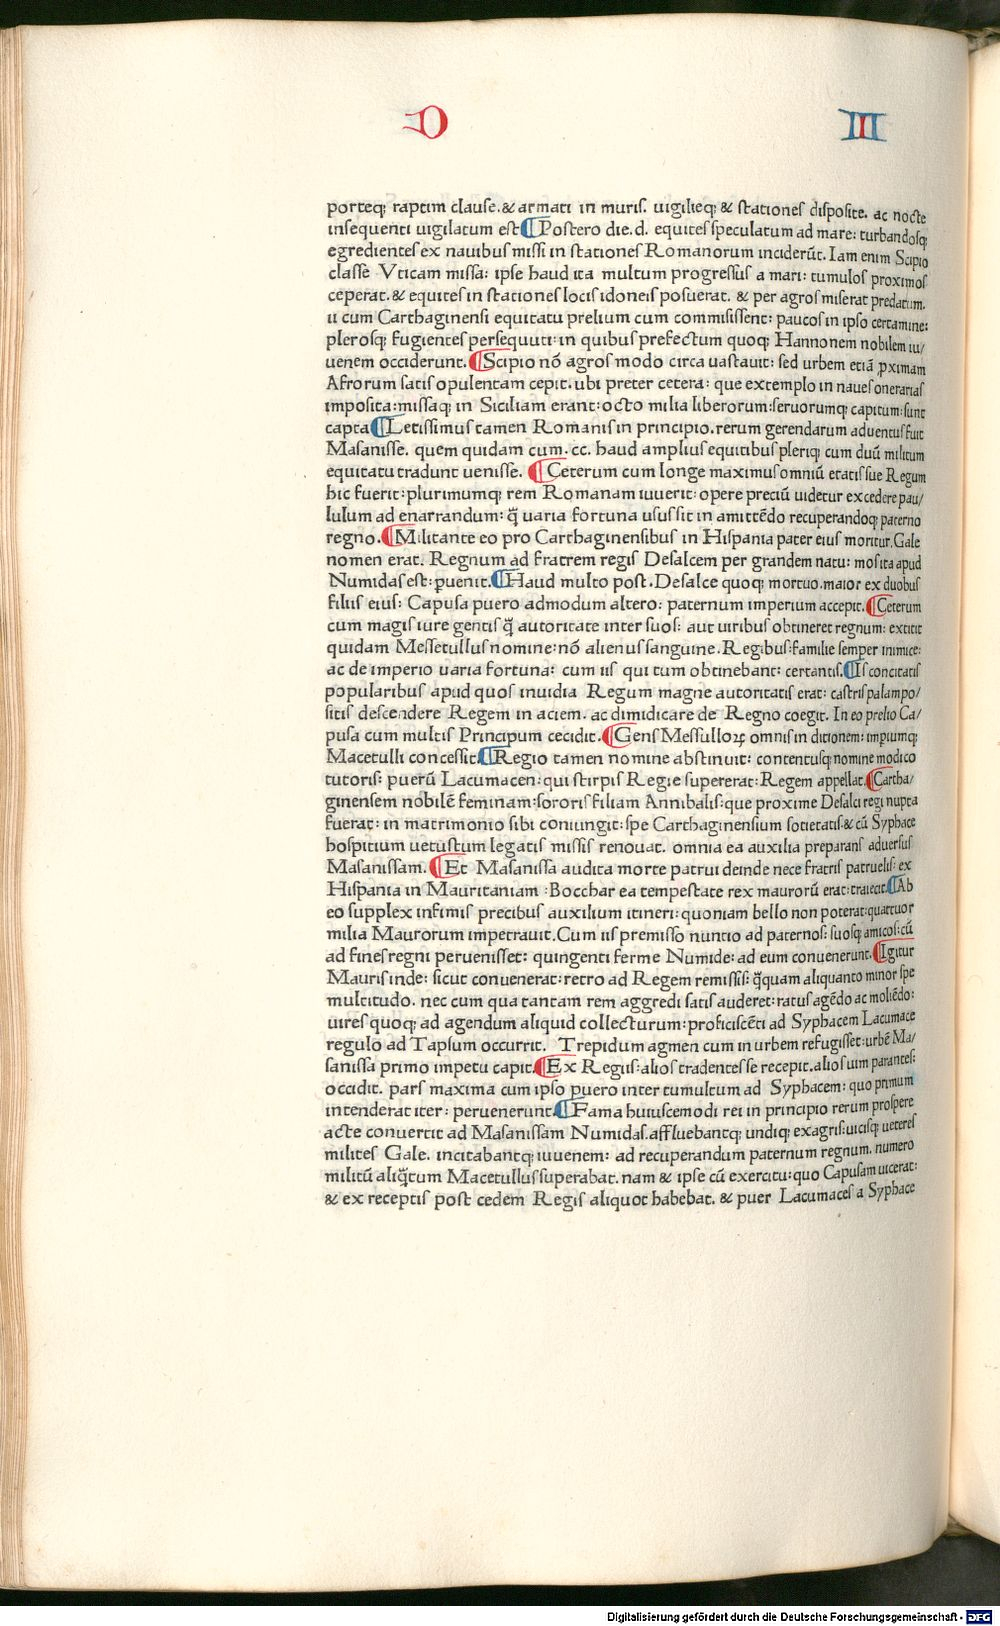 D III
porteq; raptim clause. & armati in muris. uigilieq; & stationes disposite. ac nocte
insequenti uigilatum est ¶ Postero die. d. equites speculatum ad mare: turbandosq;
egredientes ex nauibus missi in stationes Romanorum inciderūt. Iam enim Scipio
classe Vticam missa: ipse haud ita multum progressus a mari: tumulos proximos
ceperat. & equites in stationes locis idoneis posuerat. & per agros miserat predatum.
ii cum Carthaginensi equitatu prelium cum commisissent: paucos in ipso certamine:
plerosq; fugientes persequuti: in quibus prefectum quoq; Hannonem nobilem iu/
uenem occiderunt. ¶ Scipio nō agros modo circa uastauit: sed urbem etiā ꝓximam
Afrorum satis opulentam cepit. ubi preter cetera: que extemplo in naues onerarias
imposita: missaq; in Siciliam erant: octo milia liberorum: seruorumq; capitum: sunt
capta ¶ Letissimus tamen Romanis in principio. rerum gerendarum aduentus fuit
Masanisse. quem quidam cum. cc. haud amplius equitibus pleriq; cum duū militum
equitatu tradunt uenisse. ¶ Ceterum cum longe maximus omniū etatis sue Regum
hic fuerit: plurimumq; rem Romanam iuuerit: opere preciū uidetur excedere pau/
lulum ad enarrandum: q̄ uaria fortuna usus sit in amittēdo recuperandoq; paterno
regno. ¶ Militante eo pro Carthaginensibus in Hispania pater eius moritur. Gale
nomen erat. Regnum ad fratrem regis Desalcem per grandem natu: mos ita apud
Numidas est: ꝑuenit. ¶ Haud multo post. Desalce quoq; mortuo. maior ex duobus
filiis eius: Capusa puero admodum altero: paternum imperium accepit. ¶ Ceterum
cum magis iure gentis q̄ autoritate inter suos: aut uiribus obtineret regnum: extitit
quidam Messetullus nomine: nō alienus sanguine. Regibus: familie semper inimice:
ac de imperio uaria fortuna: cum iis qui tum obtinebant: certantis. ¶ Is concitatis
popularibus apud quos inuidia Regum magne autoritatis erat: castris palam po/
sitis descendere Regem in aciem. ac dimidicare de Regno coegit. In eo prelio Ca/
pusa cum multis Principum cecidit. ¶ Gens Messulloꝝ omnis in ditionem: impiumq;
Macetulli concessit. ¶ Regio tamen nomine abstinuit: contentusq; nomine modico
tutoris: puerū Lacumacen: qui stirpis Regie supererat: Regem appellat. ¶ Cartha/
ginensem nobilē feminam: sororis filiam Annibalis: que proxime Desalci regi nupta
fuerat: in matrimonio sibi coniungit: spe Carthaginensium societatis: & cū Syphace
hospitium uetustum legatis missis renouat. omnia ea auxilia preparans aduersus
Masanissam. ¶ Et Masanissa audita morte patrui deinde nece fratris patruelis: ex
Hispania in Mauritaniam: Bocchar ea tempestate rex maurorū erat: traiecit. ¶ Ab
eo supplex infimis precibus auxilium itineri: quoniam bello non poterat: quattuor
milia Maurorum impetrauit. Cum iis premisso nuntio ad paternos: suosq; amicos: cū
ad fines regni peruenisset: quingenti ferme Numide: ad eum conuenerunt. ¶ Igitur
Mauris inde: sicut conuenerat: retro ad Regem remissis: q̄quam aliquanto minor spe
multitudo. nec cum qua tantam rem aggredi satis auderet: ratus agēdo ac moliēdo:
uires quoq; ad agendum aliquid collecturum: proficiscēti ad Syphacem Lacumace
regulo ad Tapsum occurrit. Trepidum agmen cum in urbem refugisset: urbē Ma/
sanissa primo impetu capit. ¶ Ex Regiis: alios tradentes se recepit. alios uim parantes:
occidit. pars maxima cum ipso puero inter tumultum ad Syphacem: quo primum
intenderat iter: peruenerunt. ¶ Fama huiuscemodi rei in principio rerum prospere
acte conuertit ad Masanissam Numidas. affluebantq; undiq; ex agris: uicisq; ueteres
milites Gale. incitabantq; iuuenem: ad recuperandum paternum regnum. numero
militū aliq̄tum Macetullus superabat. nam & ipse cū exercitu: quo Capusam uicerat:
& ex receptis post cedem Regis aliquot habebat. & puer Lacumaces a Syphace
Digitalisierung gefördert durch die Deutsche Forschungsgemeinschaft - DFG